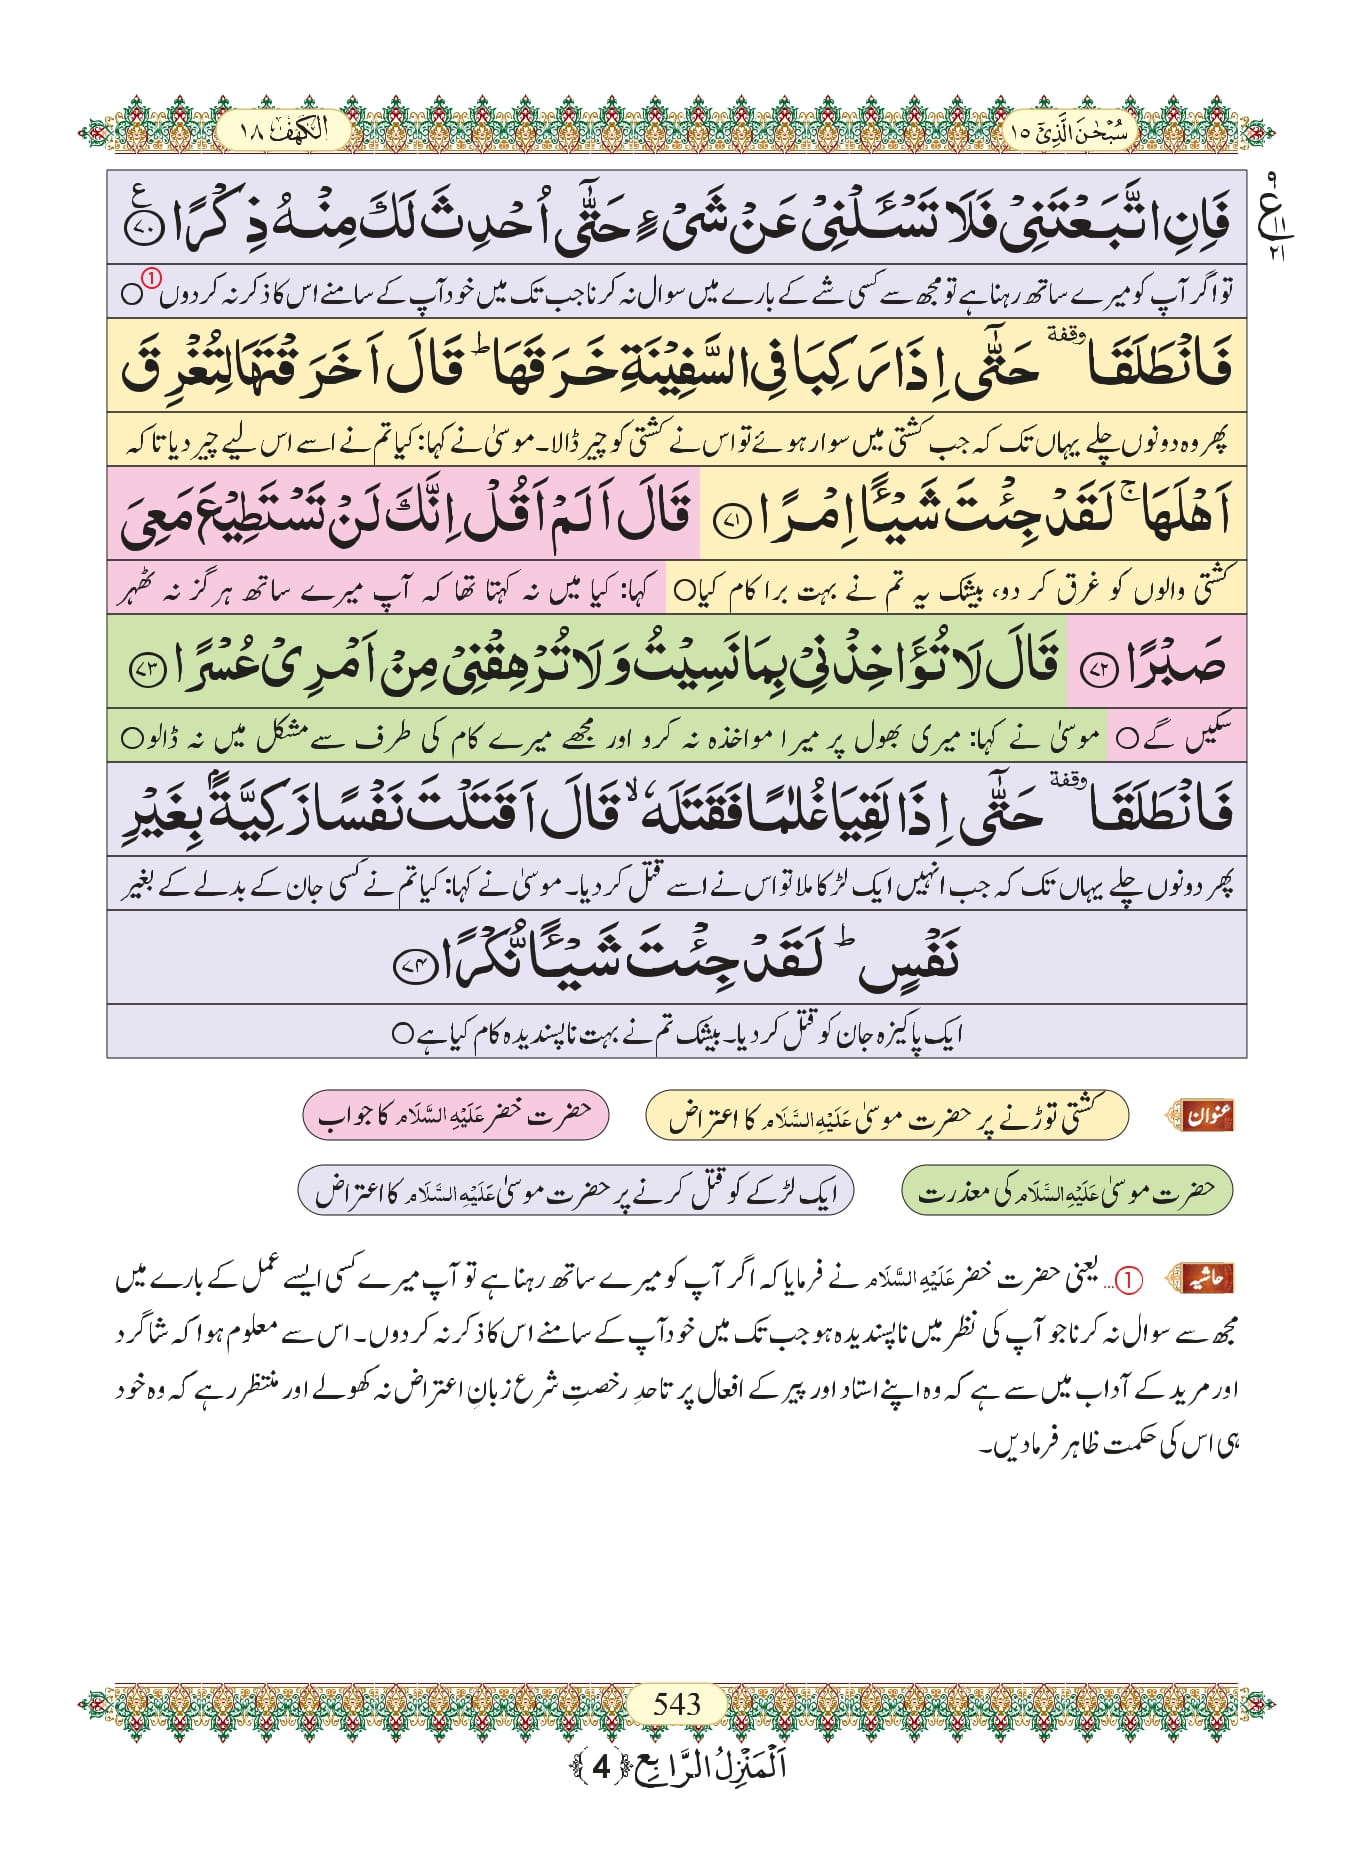 سُبْحٰنَ الَّذِیْۤ ١٥
الكهف ١٨
ع
٩
١١
٢١
فَاِنِ اتَّبَعْتَنِیْ فَلَا تَسْـَٔلْنِیْ عَنْ شَیْءٍ حَتّٰۤى اُحْدِثَ لَكَ مِنْهُ ذِكْرًا ﴿۷۰﴾ ع
تو اگر آپ کو میرے ساتھ رہنا ہے تو مجھ سے کسی شے کے بارے میں سوال نہ کرنا جب تک میں خود آپ کے سامنے اس کا ذکر نہ کردوں ① ○
فَانْطَلَقَا وقفة حَتّٰۤى اِذَا رَكِبَا فِی السَّفِیْنَةِ خَرَقَهَا ؕ قَالَ اَخَرَقْتَهَا لِتُغْرِقَ
پھر وہ دونوں چلے یہاں تک کہ جب کشتی میں سوار ہوئے تو اس نے کشتی کو چیر ڈالا۔ موسیٰ نے کہا: کیا تم نے اسے اس لیے چیر دیا تاکہ
اَهْلَهَا ۚ لَقَدْ جِئْتَ شَیْـًٔا اِمْرًا ﴿۷۱﴾ قَالَ اَلَمْ اَقُلْ اِنَّكَ لَنْ تَسْتَطِیْعَ مَعِیَ
کشتی والوں کو غرق کر دو، بیشک یہ تم نے بہت برا کام کیا ○ کہا: کیا میں نہ کہتا تھا کہ آپ میرے ساتھ ہرگز نہ ٹھہر
صَبْرًا ﴿۷۲﴾ قَالَ لَا تُؤَاخِذْنِیْ بِمَا نَسِیْتُ وَ لَا تُرْهِقْنِیْ مِنْ اَمْرِیْ عُسْرًا ﴿۷۳﴾
سکیں گے ○ موسیٰ نے کہا: میری بھول پر میرا مواخذہ نہ کرو اور مجھے میرے کام کی طرف سے مشکل میں نہ ڈالو ○
فَانْطَلَقَا وقفة حَتّٰۤى اِذَا لَقِیَا غُلٰمًا فَقَتَلَهٗ ۙ قَالَ اَقَتَلْتَ نَفْسًا زَكِیَّةًۢ بِغَیْرِ
پھر دونوں چلے یہاں تک کہ جب انہیں ایک لڑکا ملا تو اس نے اسے قتل کر دیا۔ موسیٰ نے کہا: کیا تم نے کسی جان کے بدلے کے بغیر
نَفْسٍ ؕ لَقَدْ جِئْتَ شَیْـًٔا نُّكْرًا ﴿۷۴﴾
ایک پاکیزہ جان کو قتل کر دیا۔ بیشک تم نے بہت ناپسندیدہ کام کیا ہے ○
عنوان کشتی توڑنے پر حضرت موسیٰ عَلَیْهِ السَّلَام کا اعتراض حضرت خضر عَلَیْهِ السَّلَام کا جواب
حضرت موسیٰ عَلَیْهِ السَّلَام کی معذرت ایک لڑکے کو قتل کرنے پر حضرت موسیٰ عَلَیْهِ السَّلَام کا اعتراض
حاشیہ ①... یعنی حضرت خضر عَلَیْهِ السَّلَام نے فرمایا کہ اگر آپ کو میرے ساتھ رہنا ہے تو آپ میرے کسی ایسے عمل کے بارے میں
مجھ سے سوال نہ کرنا جو آپ کی نظر میں ناپسندیدہ ہو جب تک میں خود آپ کے سامنے اس کا ذکر نہ کردوں۔ اس سے معلوم ہوا کہ شاگرد
اور مرید کے آداب میں سے ہے کہ وہ اپنے استاد اور پیر کے افعال پر تاحدِ رخصتِ شرع زبانِ اعتراض نہ کھولے اور منتظر رہے کہ وہ خود
ہی اس کی حکمت ظاہر فرمادیں۔
543
اَلْمَنْزِلُ الرَّابِع ﴿4﴾